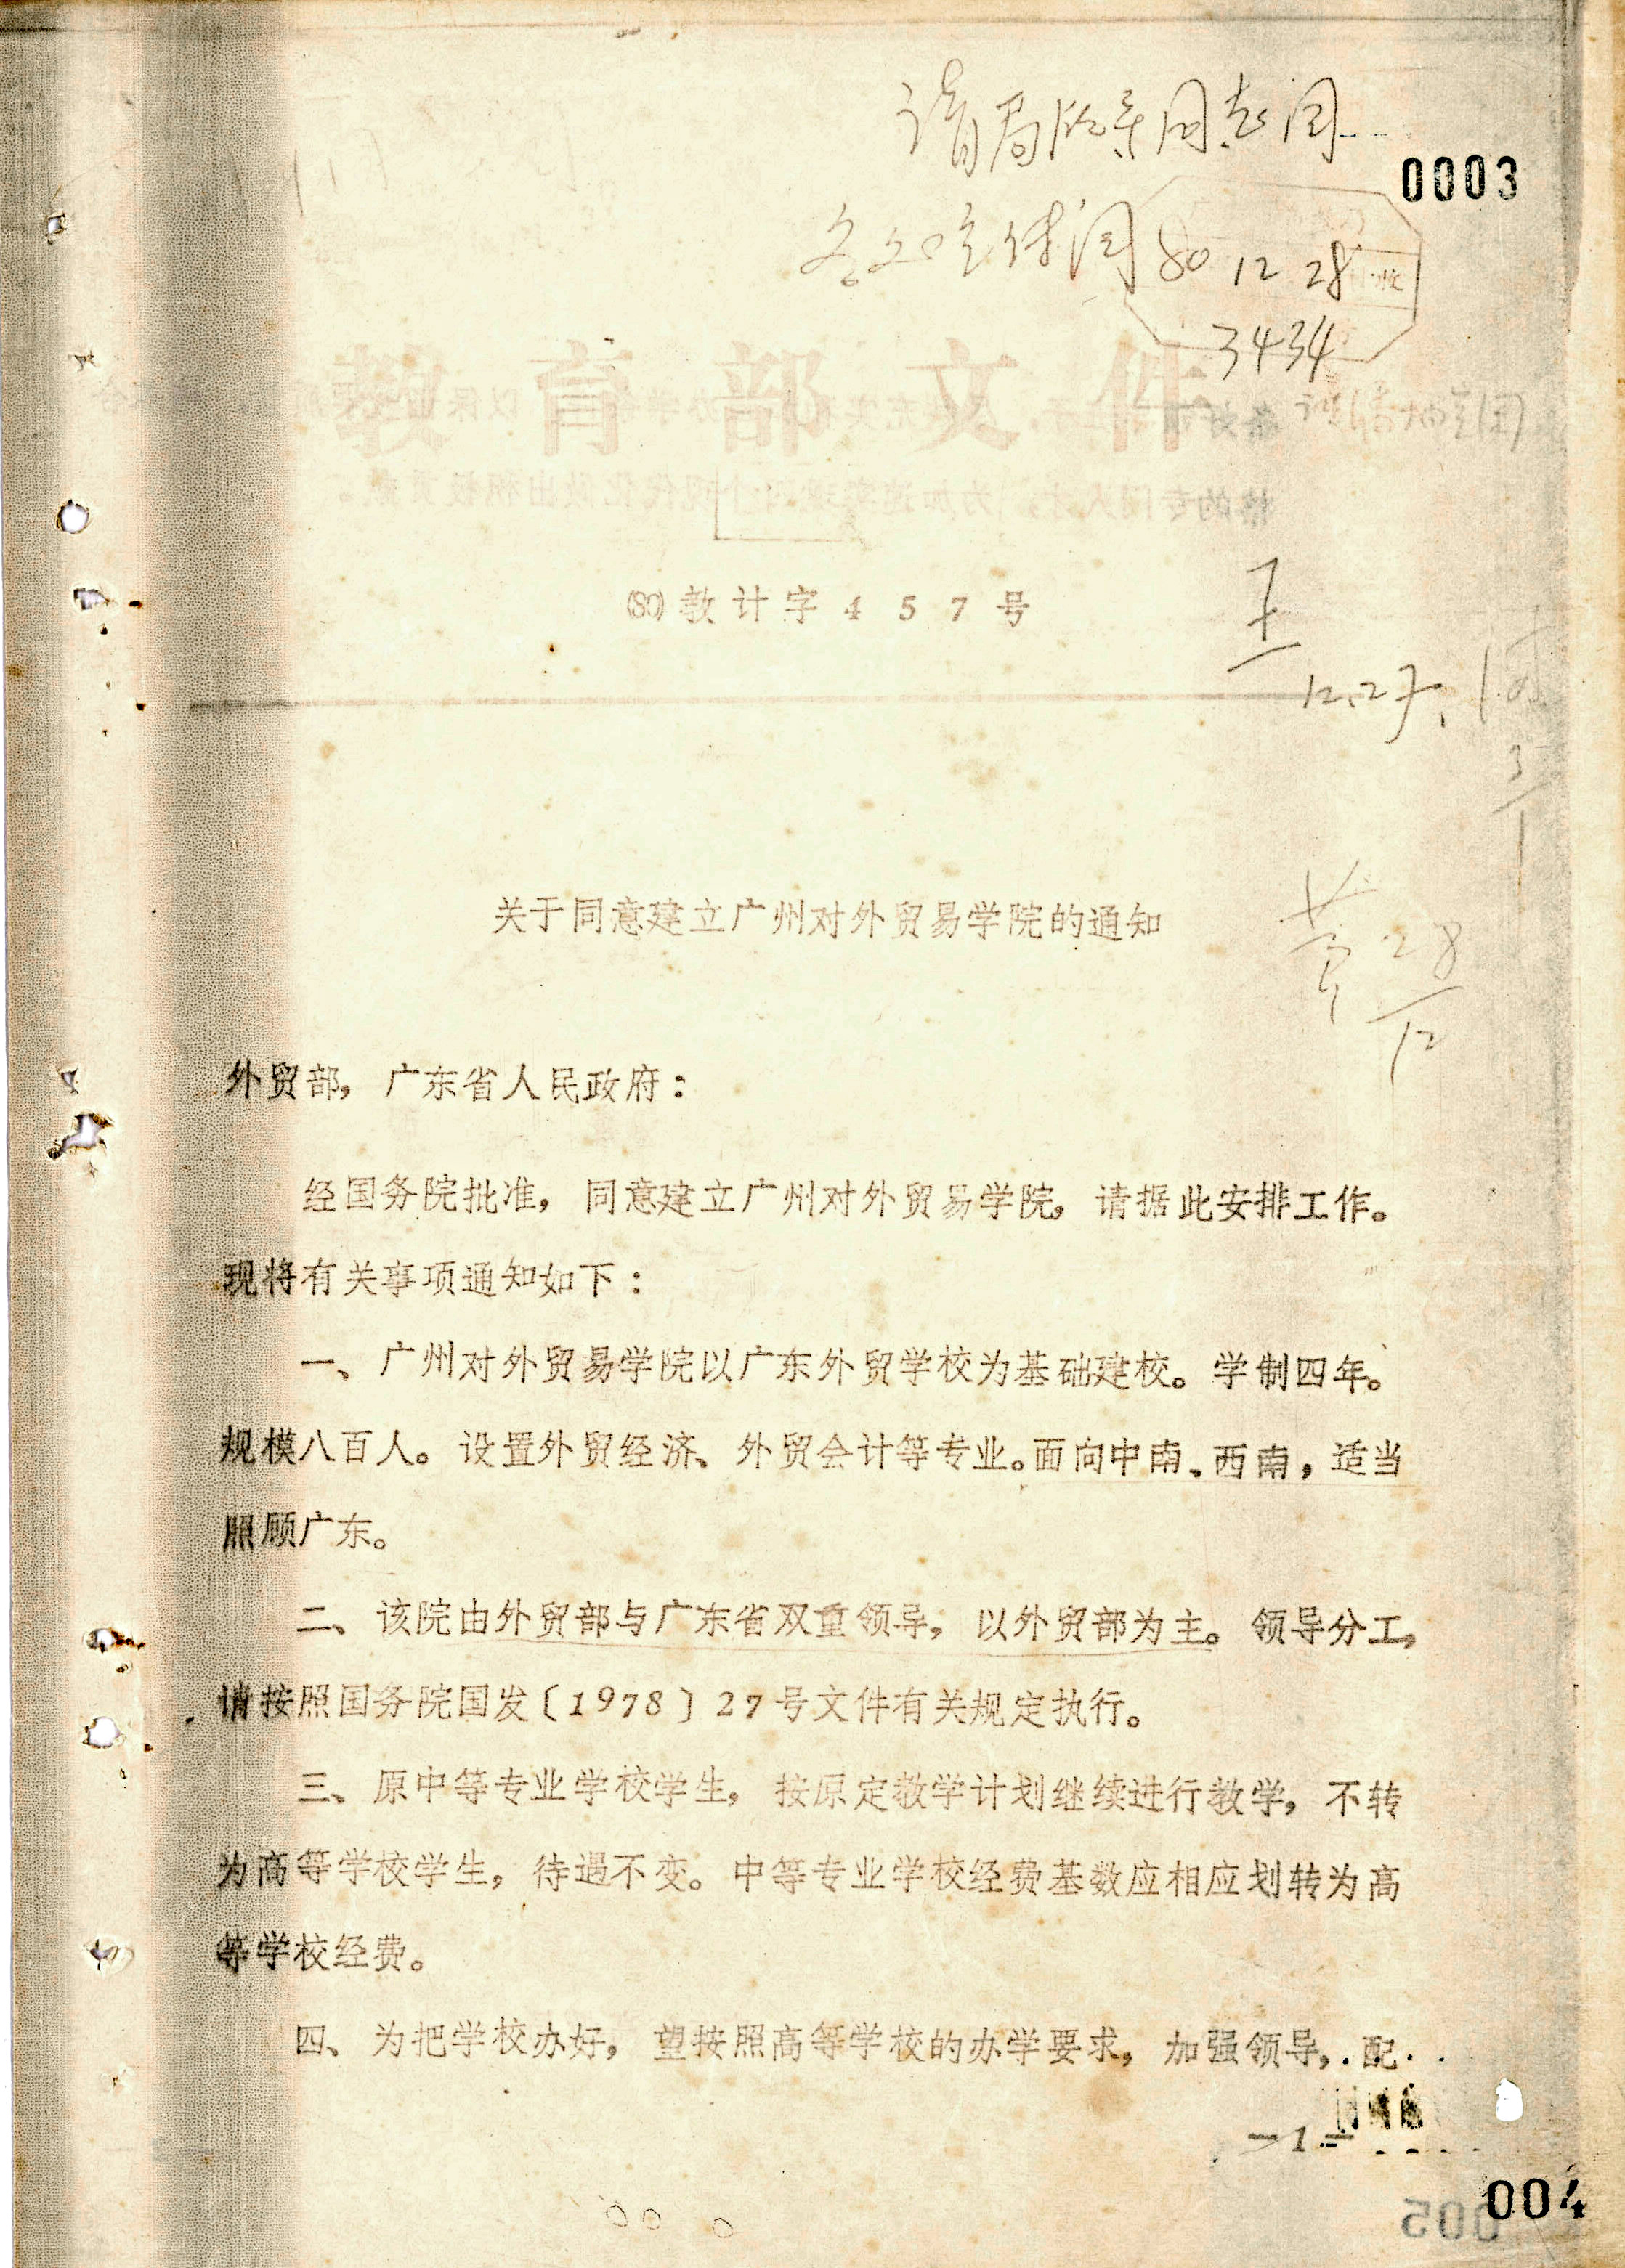 0003
80 12 28 收
3434
教育部文件
(80)教计字457号
王
12.27.
3/1
关于同意建立广州对外贸易学院的通知
黄 28/12
外贸部，广东省人民政府：
经国务院批准，同意建立广州对外贸易学院，请据此安排工作。
现将有关事项通知如下：
一、广州对外贸易学院以广东外贸学校为基础建校。学制四年。
规模八百人。设置外贸经济、外贸会计等专业。面向中南、西南，适当
照顾广东。
二、该院由外贸部与广东省双重领导，以外贸部为主。领导分工，
请按照国务院国发〔1978〕27号文件有关规定执行。
三、原中等专业学校学生，按原定教学计划继续进行教学，不转
为高等学校学生，待遇不变。中等专业学校经费基数应相应划转为高
等学校经费。
四、为把学校办好，望按照高等学校的办学要求，加强领导，配
—1—
004